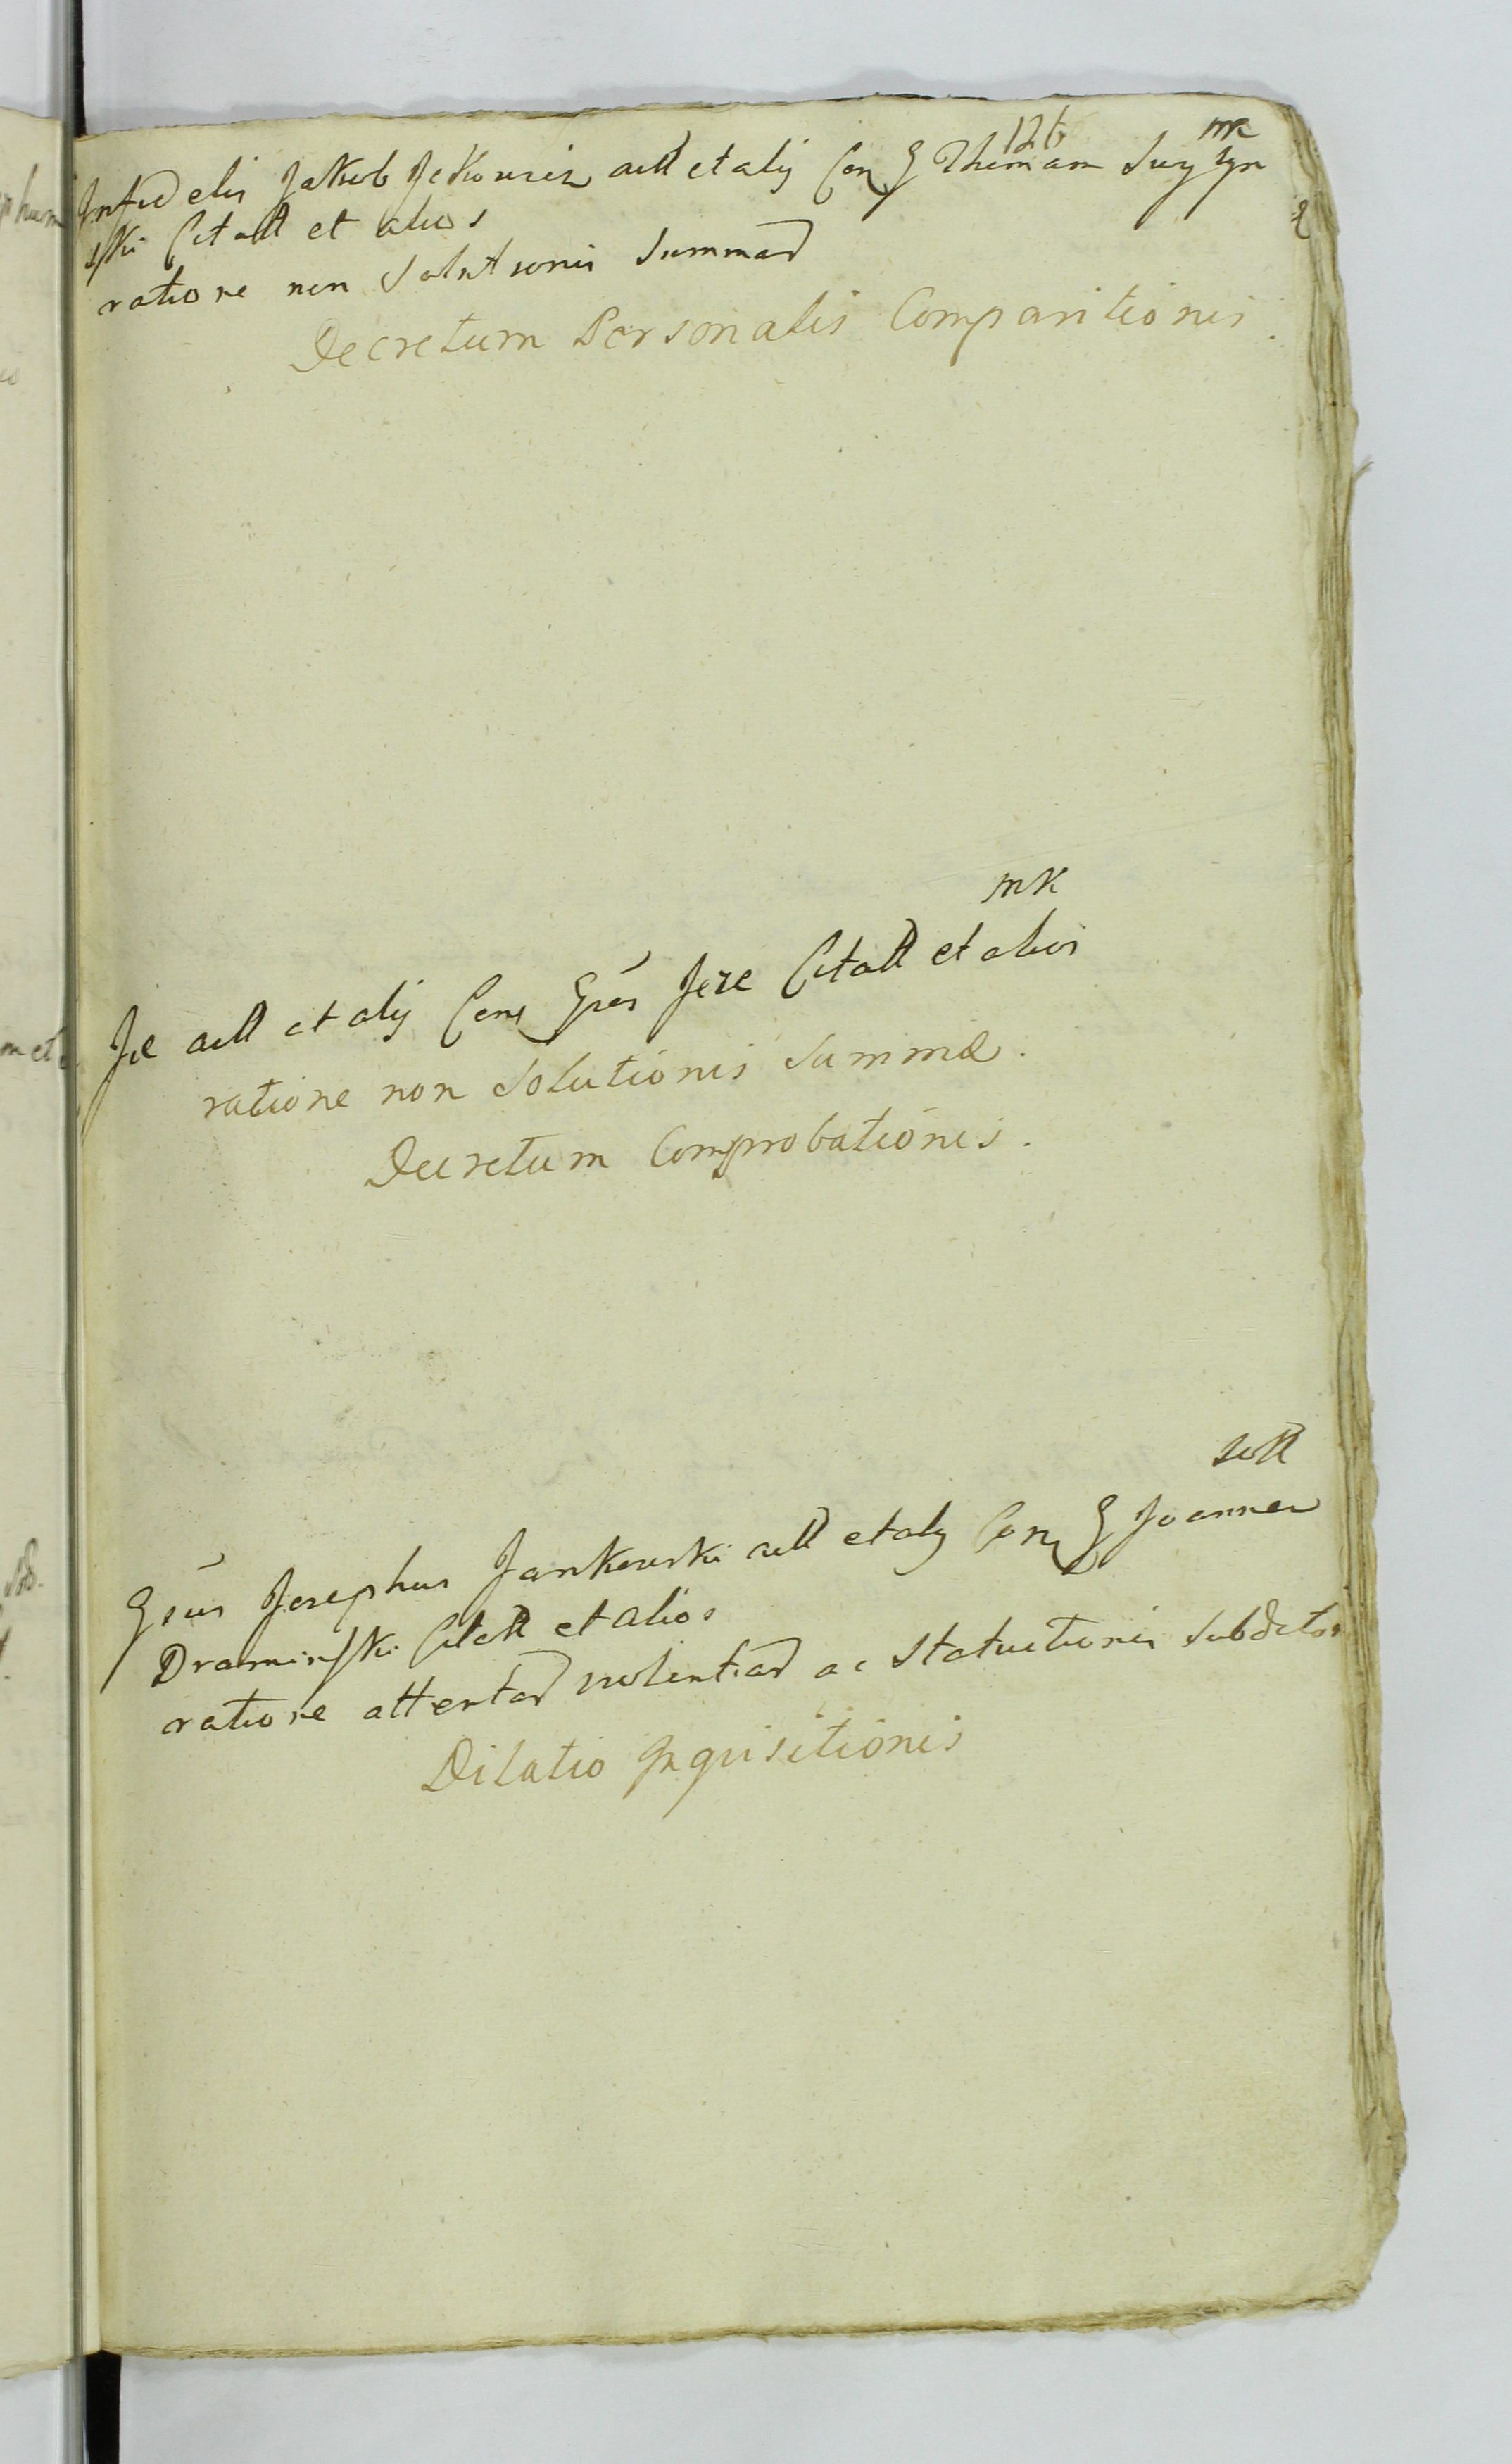 126
mk
Infidelis Jakub Jckowicz act et alij Con G Thomam
ski Citatt et alios
ratione non Solutionis Summae
Decretum Personalis Comparitionis.
mk
Je act et alij Con Gsos Jeze Citatt et alios
ratione non Solutionis Summae.
Decretum Comprobationis.
Gsus Josephus Jankowski act et alij Con G Joannem
Draminski Citatt et alios
ratione attentae violentiae ac Statuitionis Subditor
Dilatio Inquisitionis